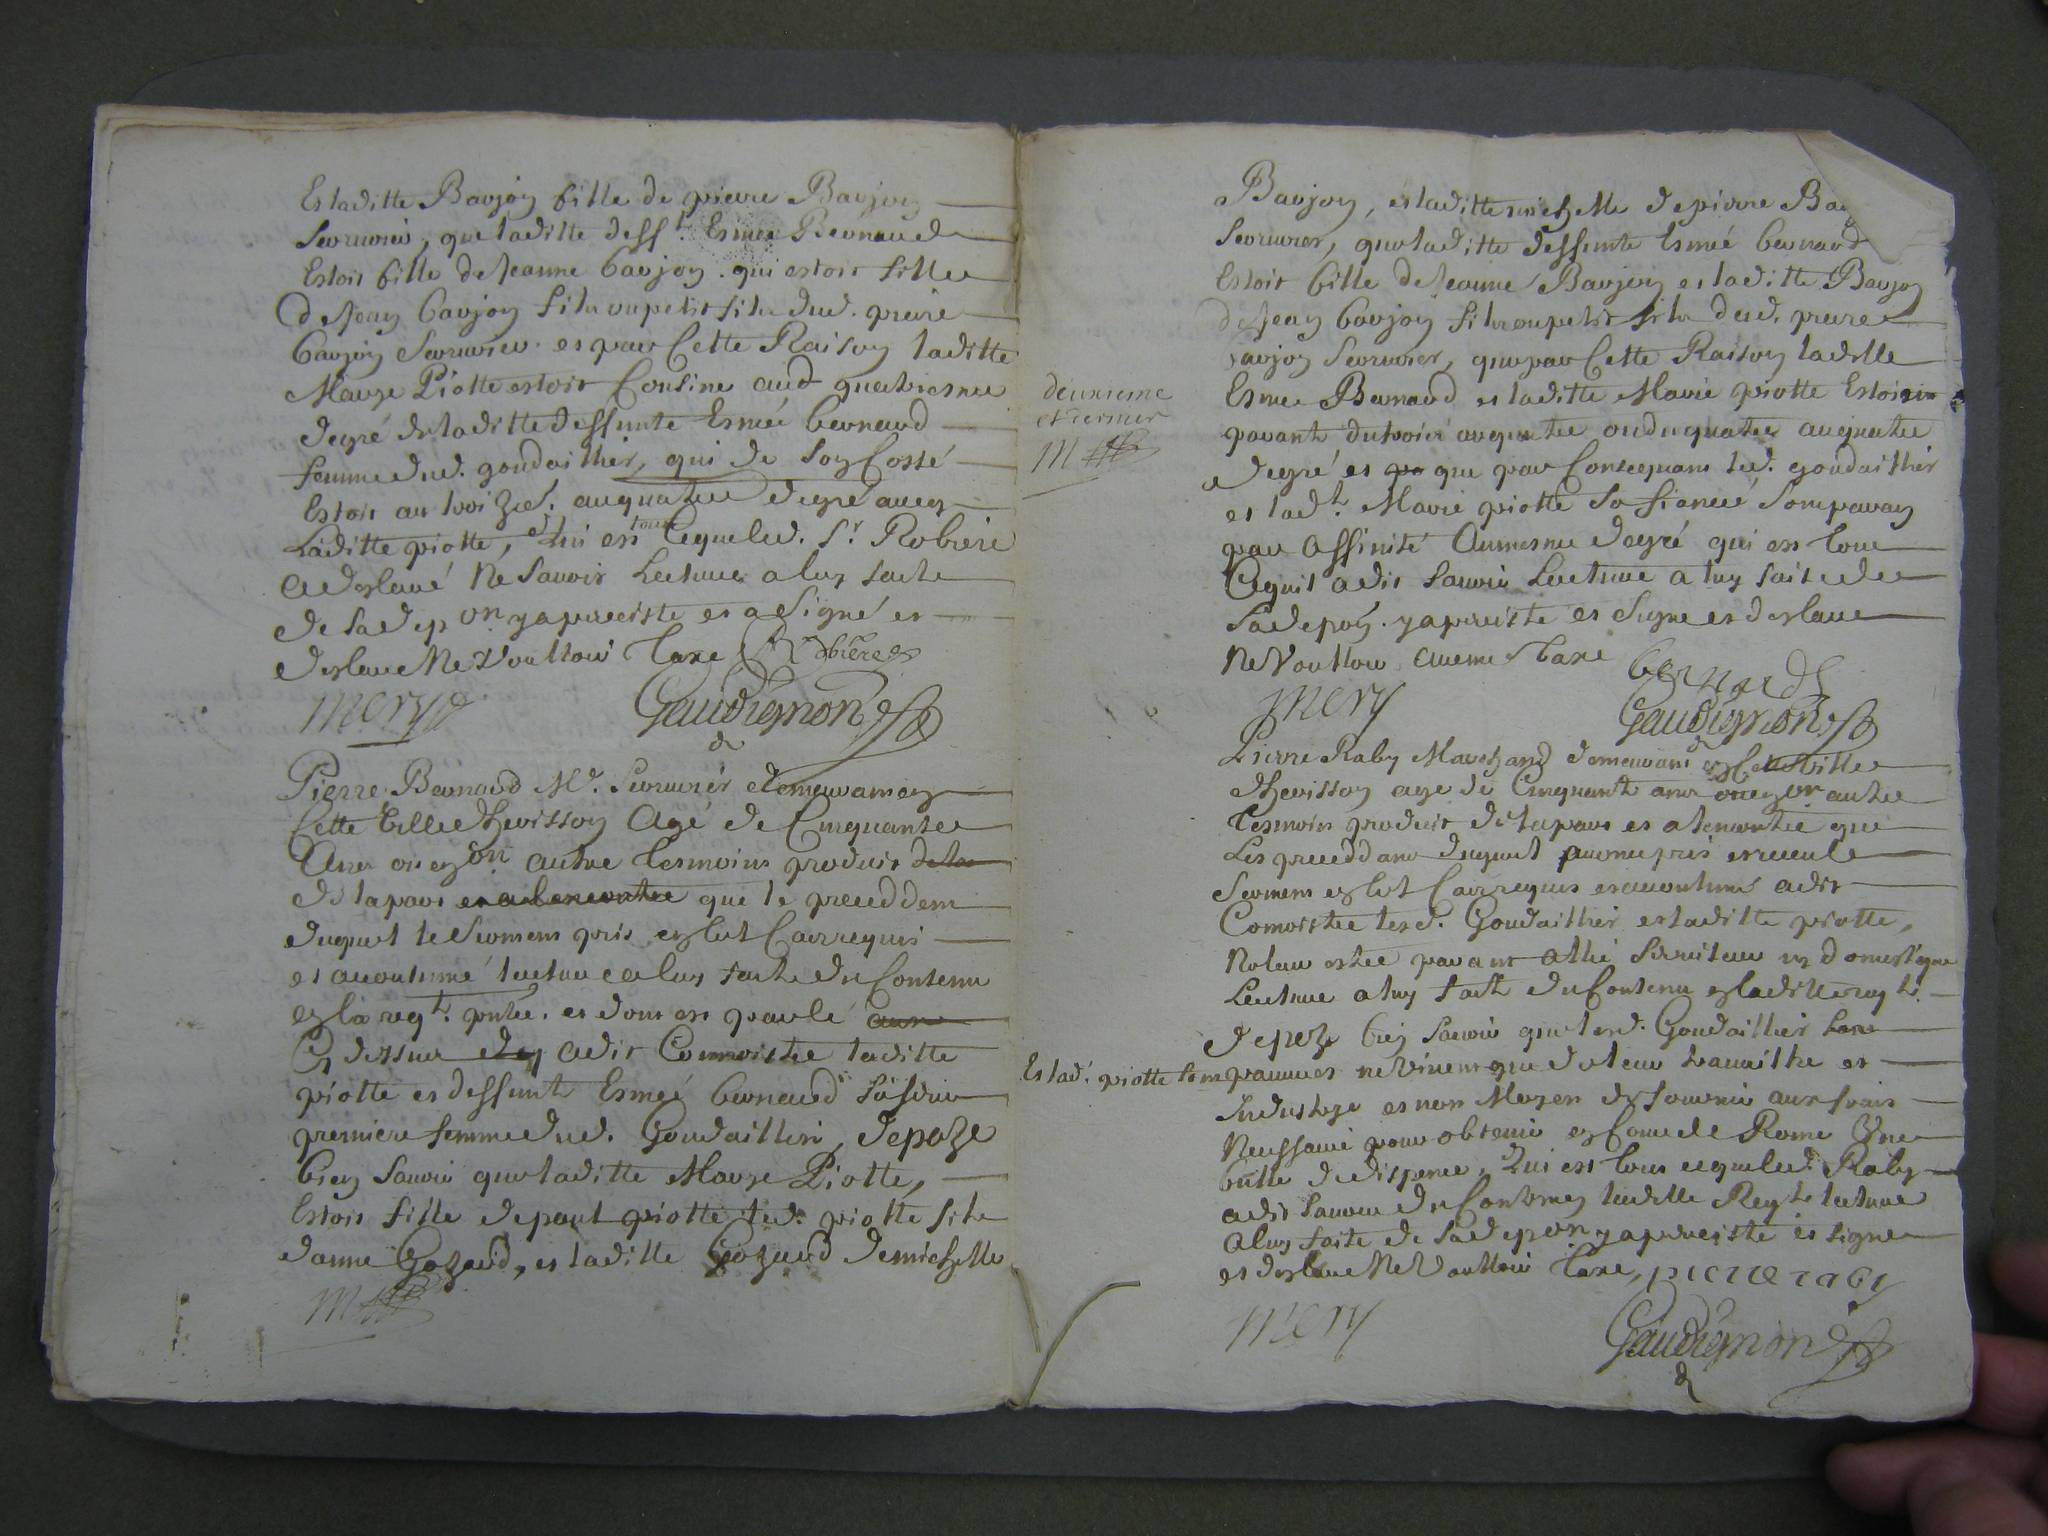 Et laditte Baujon fille de pierre Baujon
Serrurier, que laditte deff.te Esmee Bernaude
Estoit fille de Jeanne baujon qui estoit fille
de Jean baujon fils ou petit fils dud. pierre
baujon Serrurier et par Cette Raison laditte
Marye Piotte estoit Cousine aud quatriesme
degré de laditte deffunte Esmée bernaud
femme dud. goudaillier, qui de son Costé
Estoit au troize. au quatre degré avecq
Laditte piotte, Qui est tout Ceque led. Sr Robiere
a déclaré ne Savoir Lecture a luy faite
de sa dep on y a persisté et a Signé et
declaré ne Voulloir Taxe Robiere
mery Gaudignon
Pierre Bernaud Me. Serrurier demeurant en
Cette ville d'herisson Agé de Cinquante
Ans ou en on autre tesmoins produit de la
de la part et a lencontre que le preceddent
duquel le Serment pris en tel Cas requis
et accoutumé lecture a luy faite du Contenu
en la reqte. pntée. et dont est parlé aux
Cy dessus adit Connoistre laditte
piotte et deffunte Esmeé bernaud
premiere femme dud. Goudaillier, depoze
bien Savoir que laditte Marye Piotte,
Estoit fille de paul piotte led. piotte fils
danne Gozard, et laditte Gozard de michelle
Baujon, et laditte michelle de pierre Bau
Serrurier, que laditte deffunte Esmeé bernaud
Estoit fille de Jeanne Baujon et laditte Baujon
de Jean baujon fils ou petit fils dud. pierre
baujon Serrurier, que par Cette Raison laditte
Esmee Bernaud et laditte Marie piotte Estoient
deuxieme
et dernier
parant du trois au quatre ou du quatre au quatre
degré et que par Consequant led. goudaillier
et lad.te Marie piotte sa fiancée Sont parans
par Affinité Au mesme degré qui est tout
Ce quil a dit Savoir Lecture a luy faite de
Sa depon. y a persisté et Signé et declaré
Ne Voulloir aucune Taxe bernard
mery Gaudignon
Pierre Raby Marchand demeurant en Cette Ville
d'herisson agé de Cinquante ans ou en on autre
tesmoins produit de la part et a lencontre que
Les preceddans duquel avons pris et receu le
Serment en tel Cas requis et accoutumé adit
Connoistre led. Goudaillier et laditte piotte,
Ne leur estre parant allié Serviteur ny domestique
Lecture a luy faite du Contenu en laditte reqte.
depoze bien Savoir que led. Goudaillier
Et lad. piotte sont pauvres ne Vivent que de leur travaille et
Industrye et non Moyen de fournir aux frais
Necessaire pour obtenir en Cour de Rome Une
bulle de dispence, Qui est tout ce que led. Raby
adit Savoir du Contenu en laditte Reqte lecture
a luy faite de sa dep on y a persisté et signé
et declaré Ne Voulloir Taxe, pierre raby
mery
Gaudignon